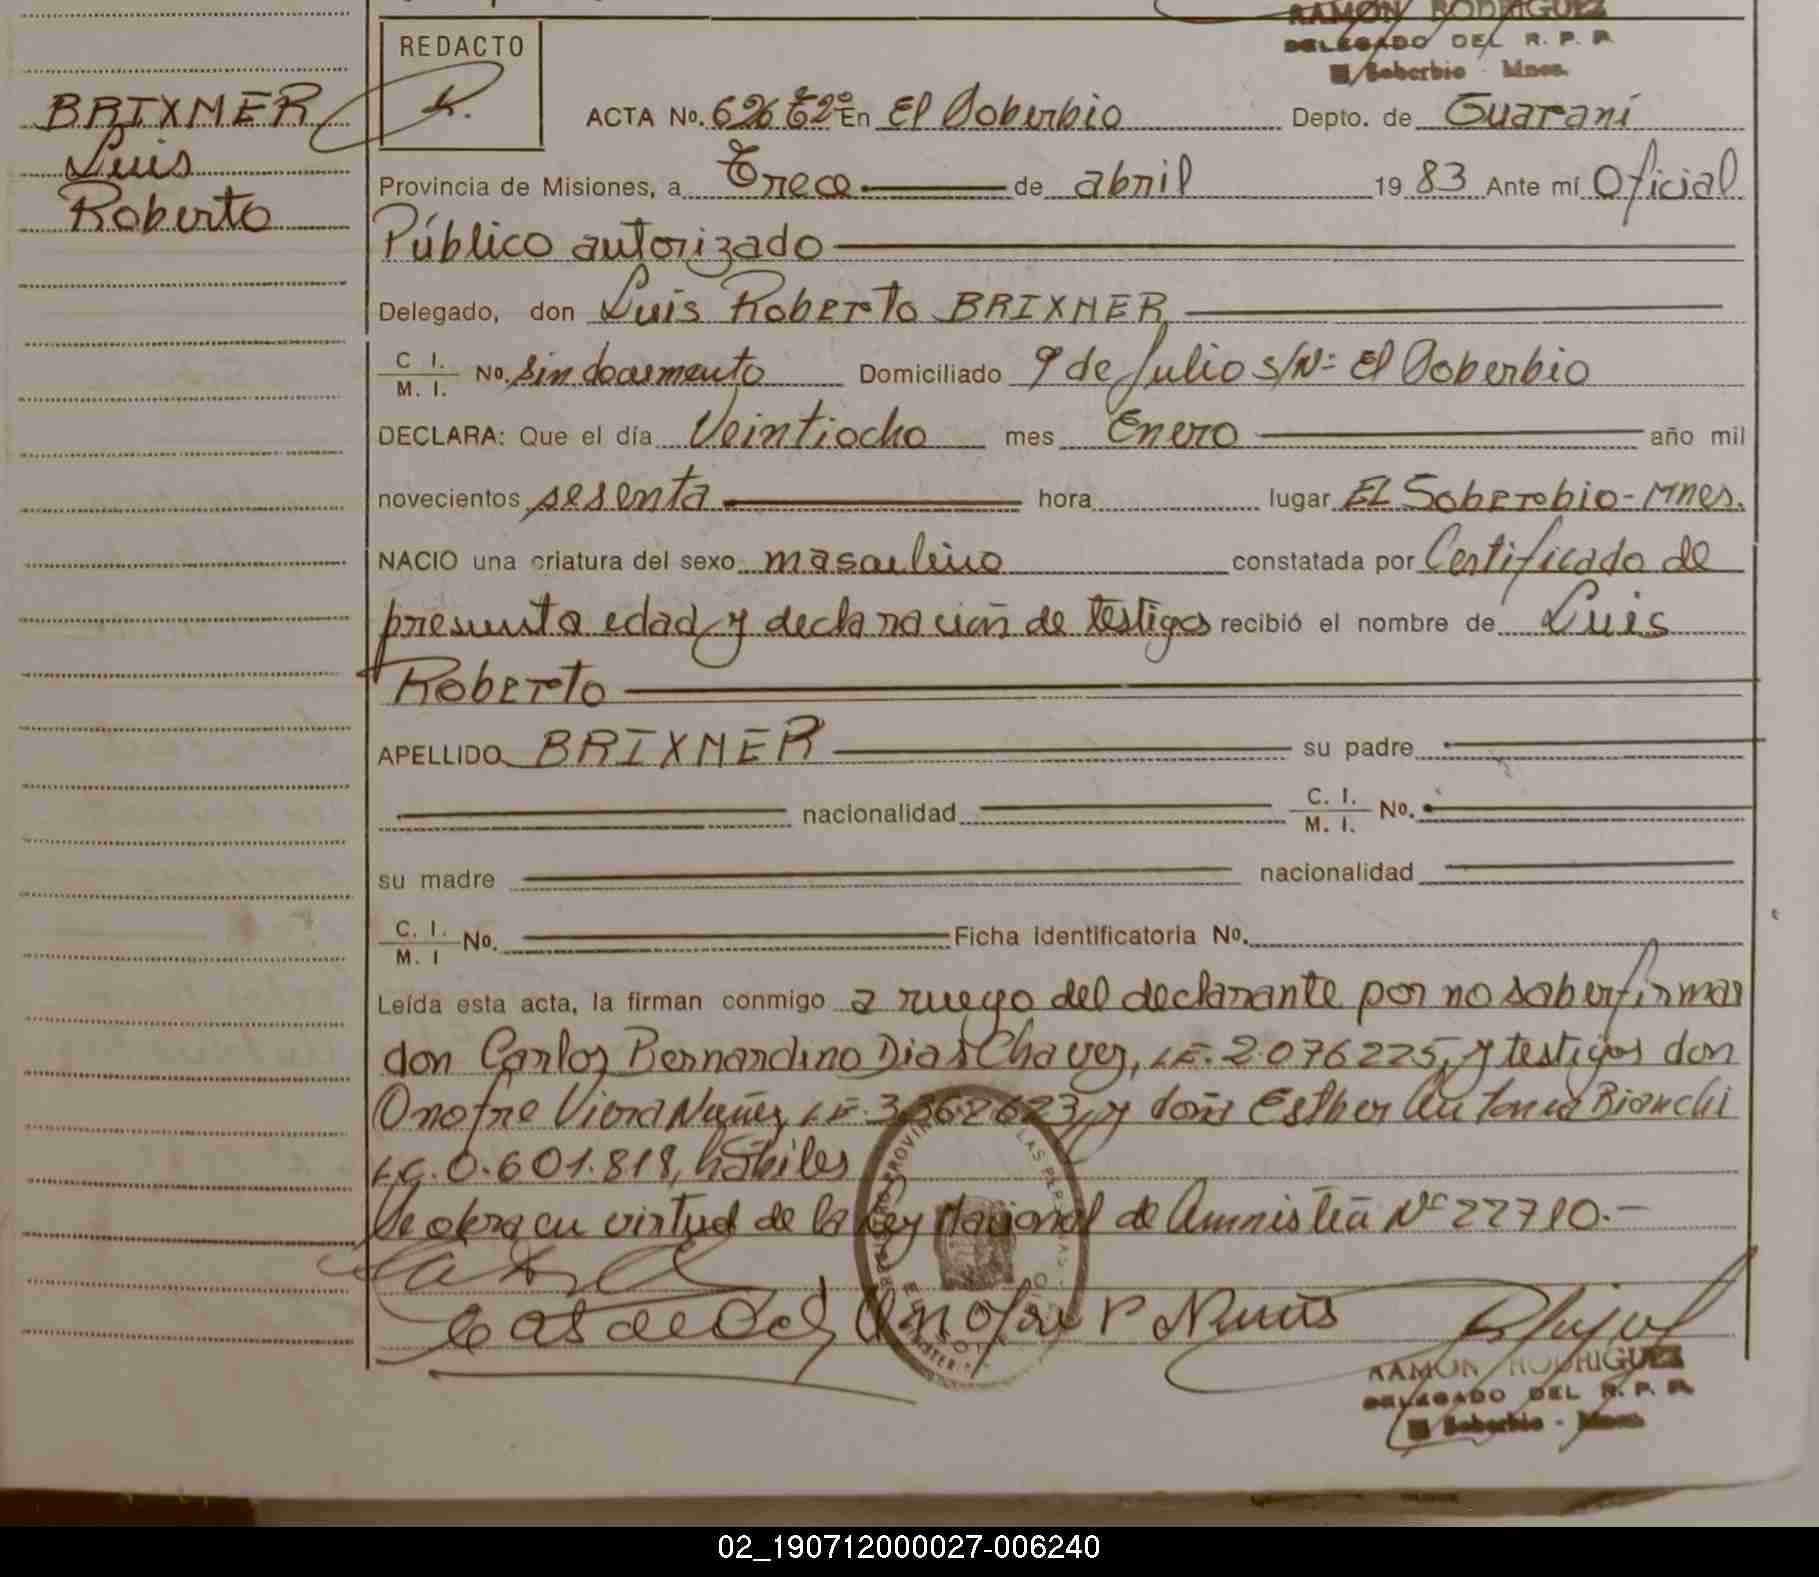 RAMON RODRIGUEZ
DELEGADO DEL R. P. P.
El Soberbio - Mnes.
REDACTO
R.
BRIXNER
Luis
Roberto
ACTA No. 626 Tº2º En El Soberbio Depto. de Guaraní
Provincia de Misiones, a Trece de abril 19 83 Ante mí Oficial
Público autorizado
Delegado, don Luis Roberto BRIXNER
C. I. / M. I. No. sin documento Domiciliado 9 de Julio s/Nº El Soberbio
DECLARA: Que el día Veintiocho mes Enero año mil
novecientos sesenta hora lugar El Soberbio - Mnes.
NACIO una criatura del sexo masculino constatada por Certificado de
presunta edad y declaración de testigos recibió el nombre de Luis
Roberto
APELLIDO BRIXNER su padre
nacionalidad C. I. / M. I. No.
su madre nacionalidad
C. I. / M. I No. Ficha identificatoria No.
Leída esta acta, la firman conmigo a ruego del declarante por no saber firmar
don Carlos Bernardino Dias Chavez, L.E. 2.076225, y testigos don
Onofre Viera Nuñez L.E. 3.362623, y doña Esther Antonia Bianchi
L.C. 0.601.818, hábiles
Se obra en virtud de la Ley Nacional de Amnistía Nº 22710.-
RAMON RODRIGUEZ
DELEGADO DEL R. P. P.
El Soberbio - Mnes.
02_190712000027-006240